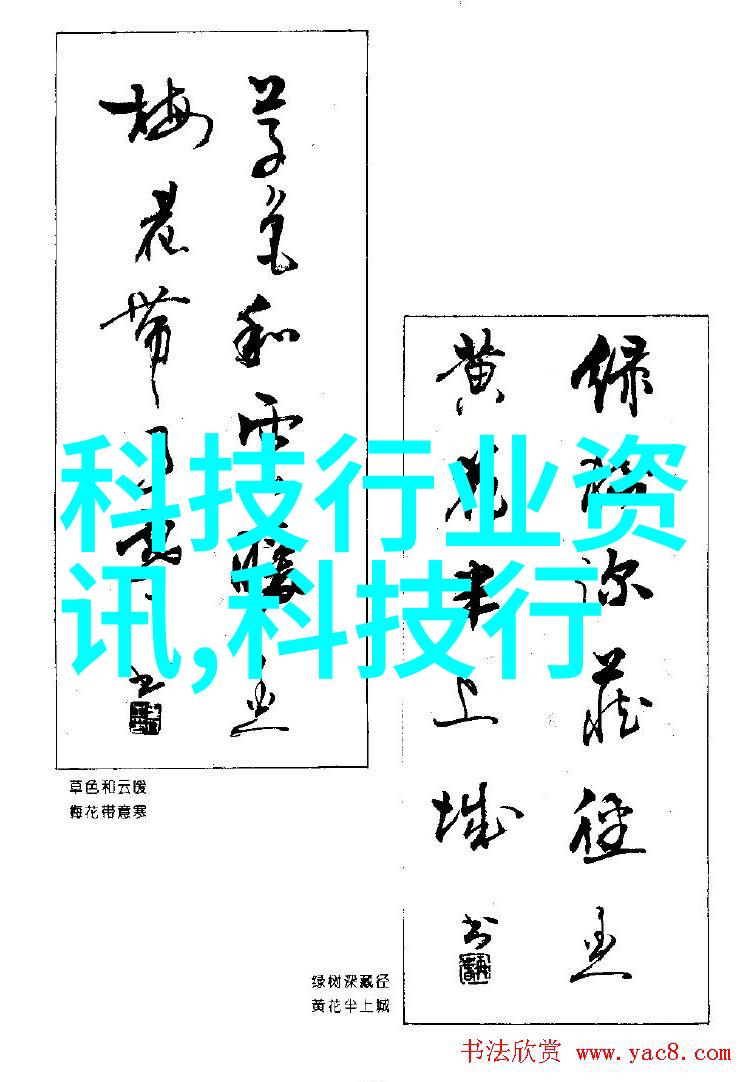 草色和雲暖
梅花帶
书
科技行业资
讯,科技行
绿树深藏径
黄花半上城
书
草色和云暖
梅花带意寒
绿树深藏径
黄花半上城
书法欣赏 www.yac8.com